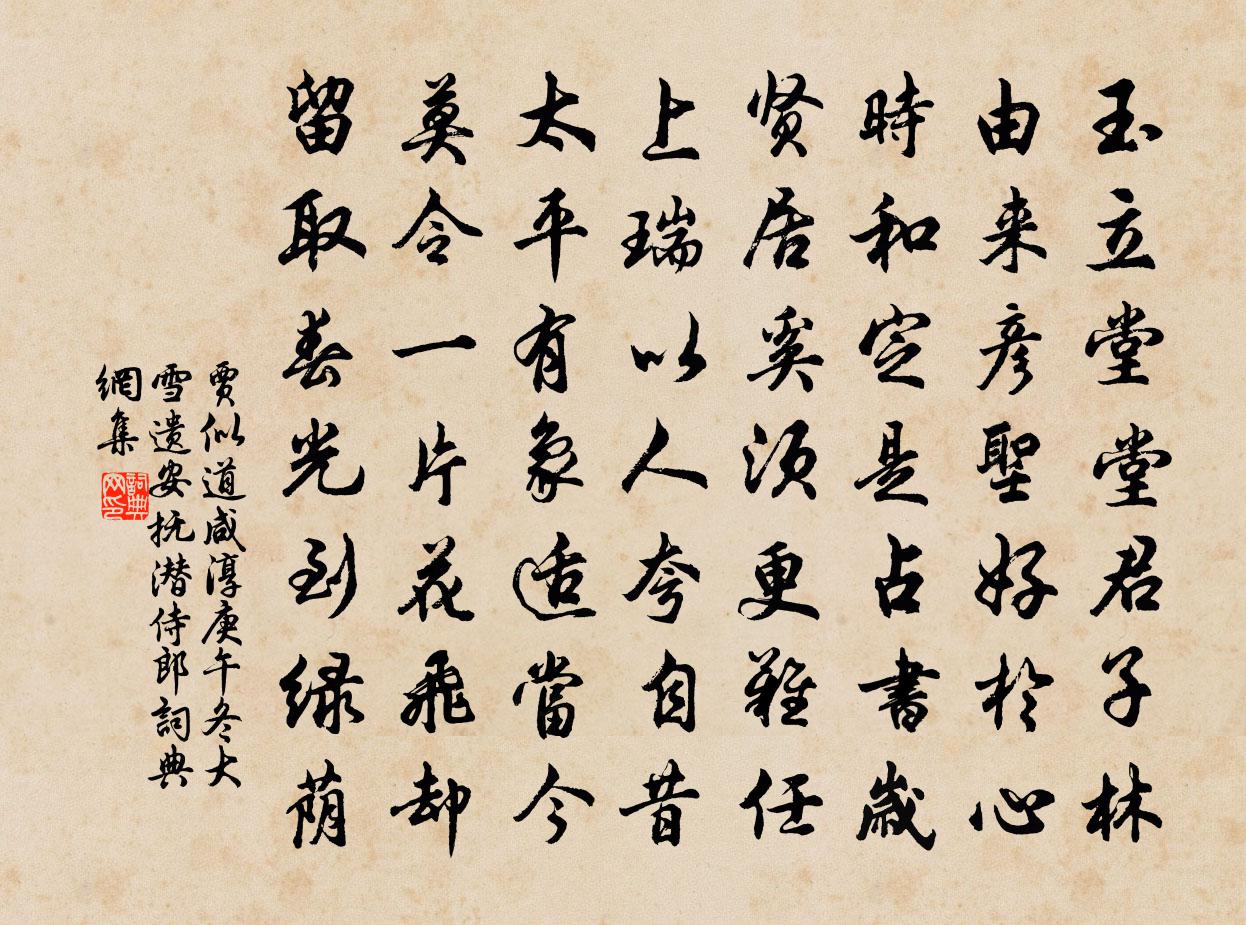 玉立堂堂君子林
由来彦聖好於心
時和定是占書歲
贤居奚须更難任
上瑞以人夸自昔
太平有象适當今
莫令一片花飛却
留取春光到绿荫
賈似道咸淳庚午冬大
雪遗安抚潜侍郎詞典
網集
詞典网印